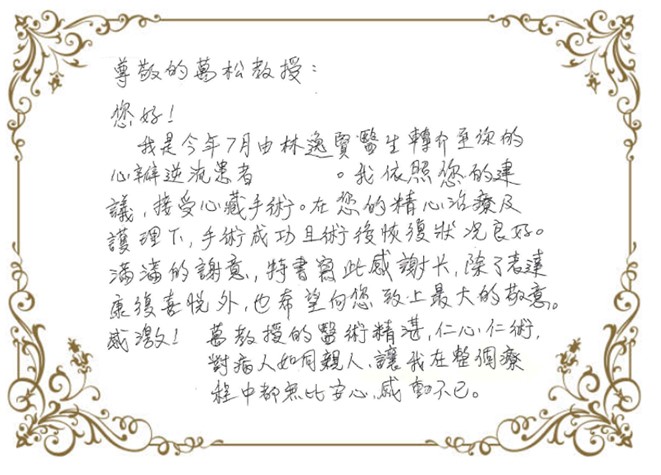 尊敬的萬松教授：
您好！
我是今年7月由林逸賢醫生轉介至您的
心瓣逆流患者　　　　。我依照您的建
議，接受心臟手術。在您的精心治療及
護理下，手術成功且術後恢復狀况良好。
滿滿的謝意，特書寫此感謝卡，除了表達
康復喜悅外，也希望向您致上最大的敬意。
感激！ 萬教授的醫術精湛，仁心仁術，
對病人如同親人、讓我在整個療
程中都無比安心，感動不已。